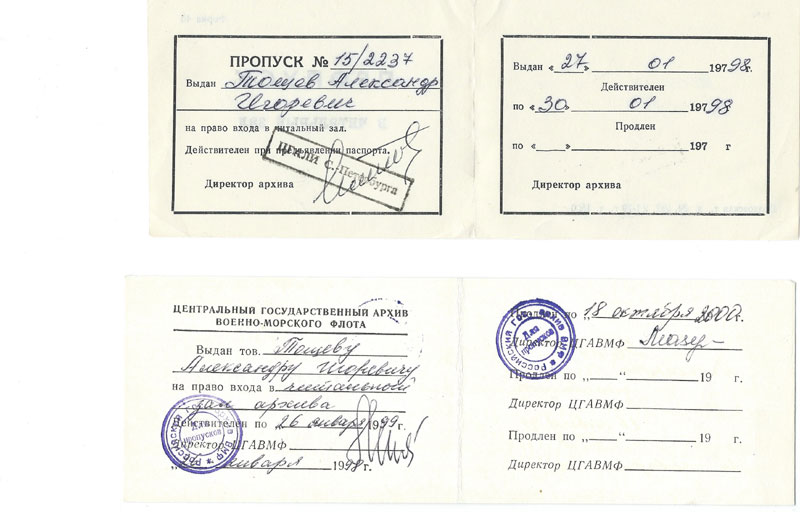 ПРОПУСК № 15/2237
Выдан Тощев Александр
Игоревич
на право входа в читальный зал.
Действителен при предъявлении паспорта.
ЦГКЛИ С.-Петербурга
Директор архива
Выдан «27» 01 197 98г.
Действителен
по «30» 01 197 98
Продлен
по «___» 197 г
Директор архива
ЦЕНТРАЛЬНЫЙ ГОСУДАРСТВЕННЫЙ АРХИВ
ВОЕННО-МОРСКОГО ФЛОТА
Выдан тов. Тощеву
Александру Игоревичу
на право входа в читальный
зал архива
Действителен по 26 января 1999
Директор ЦГАВМФ
января 1998 г.
Российский гос. архив ВМФ
Для пропусков
Продлен по „ 18 октября 2000г.
Директор ЦГАВМФ
Российский гос. архив ВМФ
Для пропусков
Продлен по „___“ 19 г.
Директор ЦГАВМФ
Продлен по „___“ 19 г.
Директор ЦГАВМФ